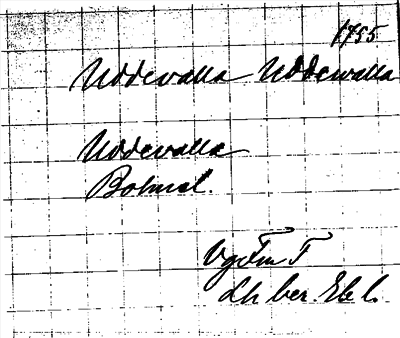 1795
Uddevalla Uddevalla
Uddevalla
Bohusl.
VgFmT
Lh ber.